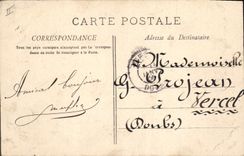 CARTE POSTALE
CORRESPONDANCE
Tous les pays étrangers n'acceptent pas la correspondance
au recto, se renseigner à la Poste.
Adresse du Destinataire
Mademoiselle
G Projean
Vercel
(Doubs)
Amical bonjour